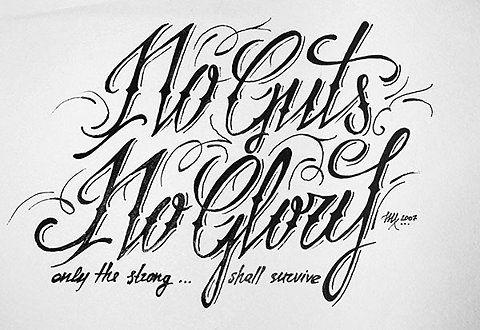 No Guts
No Glory
2007
only the strong ... shall survive